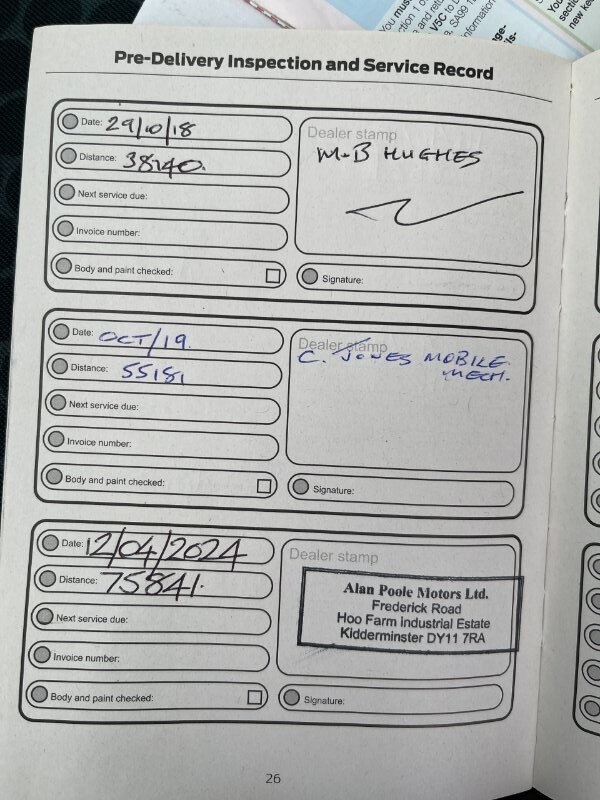 You must
ction 1 o
V5C to D
, SA99 1
nformation
You
section
new kee
Pre-Delivery Inspection and Service Record
Date: 29/10/18
Distance: 38140.
Next service due:
Invoice number:
Body and paint checked:
Dealer stamp
M.B HUGHES
Signature:
Date: OCT/19.
Distance: 55181
Next service due:
Invoice number:
Body and paint checked:
Dealer stamp
C. JONES MOBILE
MECH.
Signature:
Date: 12/04/2024
Distance: 75841.
Next service due:
Invoice number:
Body and paint checked:
Dealer stamp
Alan Poole Motors Ltd.
Frederick Road
Hoo Farm Industrial Estate
Kidderminster DY11 7RA
Signature:
26